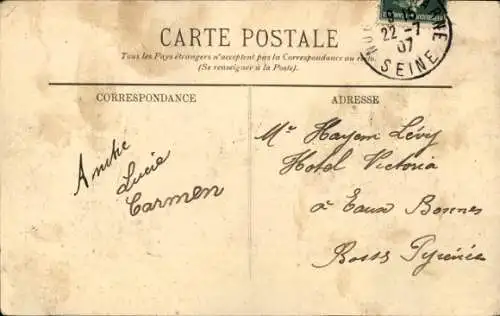 CARTE POSTALE
Tous les Pays étrangers n'acceptent pas la Correspondance au recto.
(Se renseigner à la Poste).
CORRESPONDANCE
ADRESSE
22 -7
07
SEINE
Lucie
Carmen
Mr Hayem Lévy
Hotel Victoria
à Eaux Bonnes
Basses Pyrénées